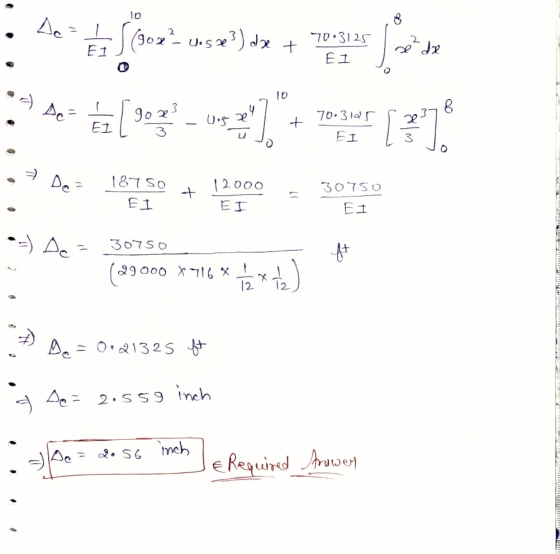 Δc = 1/EI ∫₀¹⁰ (90x² - 4.5x³) dx + 70.3125/EI ∫₀⁸ x² dx
⇒ Δc = 1/EI [90x³/3 - 4.5 x⁴/4]₀¹⁰ + 70.3125/EI [x³/3]₀⁸
⇒ Δc = 18750/EI + 12000/EI = 30750/EI
⇒ Δc = 30750/(29000 × 716 × 1/12 × 1/12) ft
⇒ Δc = 0.21325 ft
⇒ Δc = 2.559 inch
⇒ Δc = 2.56 inch ∈ Required Answer